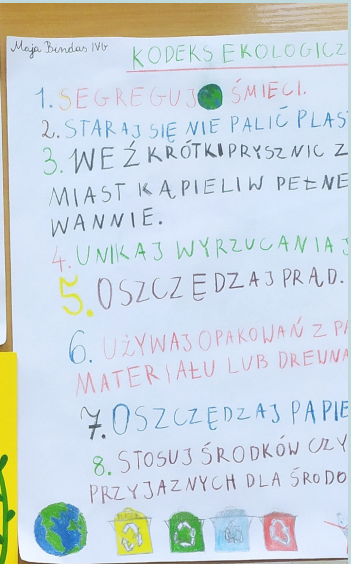 Maja Bindas IVb
KODEKS EKOLOGICZ
1. SEGREGUJ ŚMIECI.
2. STARAJ SIĘ NIE PALIĆ PLAS
3. WEŹ KRÓTKI PRYSZNIC Z
MIAST KĄPIELI W PEŁNE
WANNIE.
4. UNIKAJ WYRZUCANIA J
5. OSZCZĘDZAJ PRĄD.
6. UŻYWAJ OPAKOWAŃ Z PA
MATERIAŁU LUB DREWNA
7. OSZCZĘDZAJ PAPIE
8. STOSUJ ŚRODKÓW CZY
PRZYJAZNYCH DLA ŚRODO